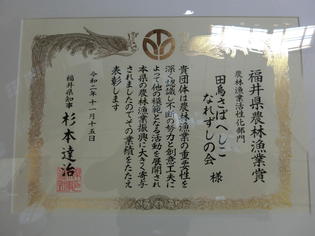 福井県農林漁業賞
農林漁業活性化部門
田烏さばへしこ
なれずしの会 様
貴団体は農林漁業の重要性を
深く認識し不断の努力と創意工夫に
よって他の模範となる活動を展開され
本県の農林漁業振興に大きく寄与
されましたのでその業績をたたえ
表彰します
令和二年十一月十五日
福井県知事 杉本達治